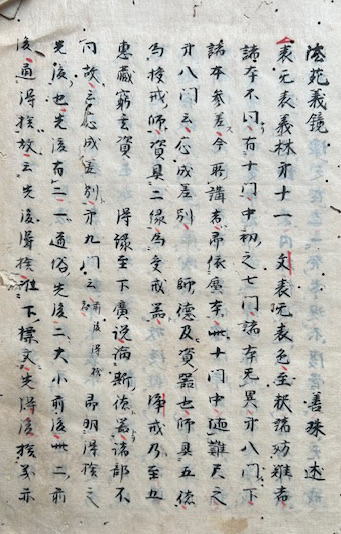 法苑義鏡 善珠 述
表无表義林第十一 文表无表色至釈諸妨難者
諸本不同有十門中初之七門諸本无異第八門下
諸本參差今 講者 依廣本 十門中 難尺之
第八門云応成差別 師德及資器也師具五德
為授戒師資具二縁為受戒器 戒乃至五
恵蔵窮玄資 得 至下廣説 斯德器諸部不
同故云応成差別第九門云前後得捨 明得捨之
先後也先後有二一道俗先後二大小前後 二前
後通得捨故云先後得捨 下標文先得後捨 亦